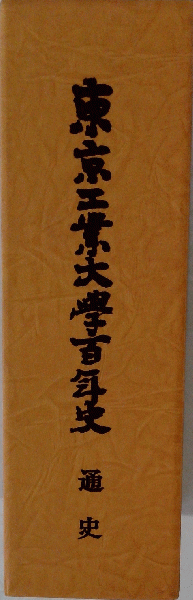 東京工業大學百年史
通史